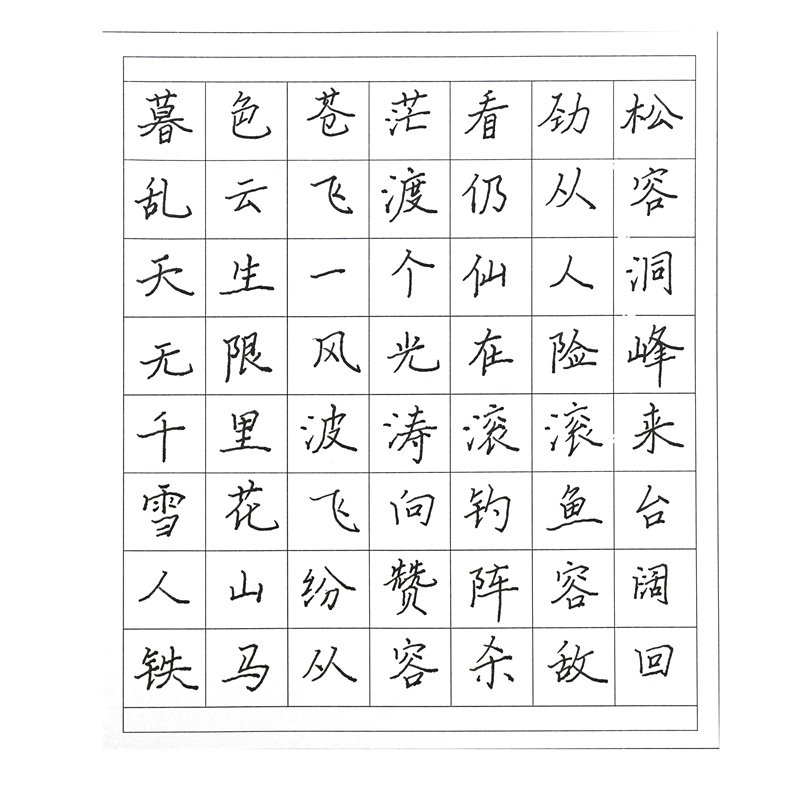 暮色苍茫看劲松
乱云飞渡仍从容
天生一个仙人洞
无限风光在险峰
千里波涛滚滚来
雪花飞向钓鱼台
人山纷赞阵容阔
铁马从容杀敌回